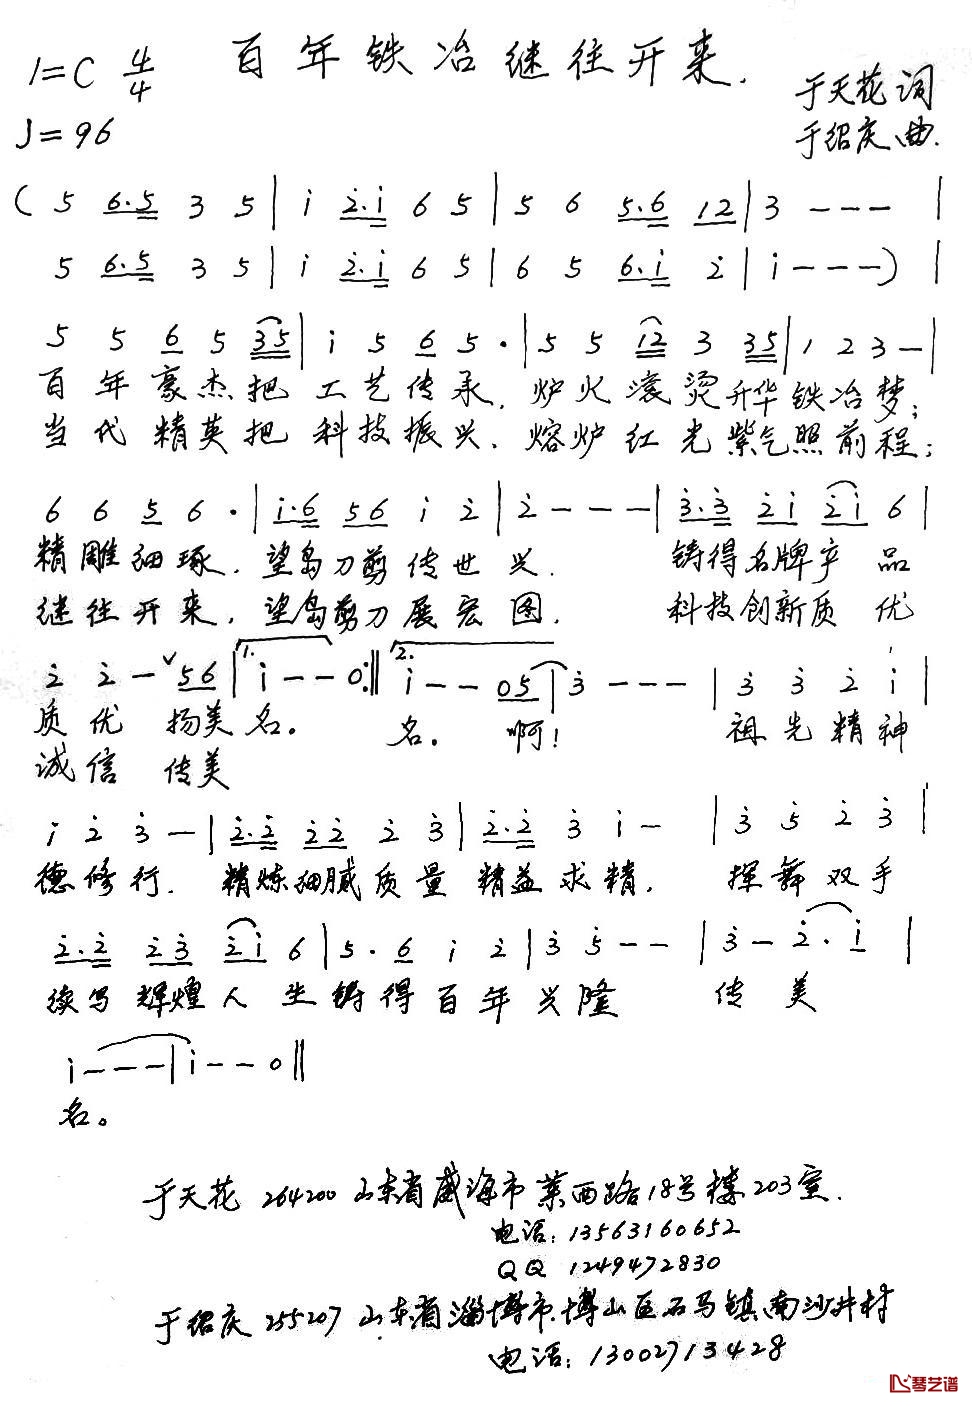 百年铁冶继往开来.
1=C 4/4
于天花 词
♩=96
于绍庆 曲.
( 5 6.5 3 5 | i 2̇.i 6 5 | 5 6 5.6 12 | 3 - - - |
5 6.5 3 5 | i 2̇.i 6 5 | 6 5 6.i 2̇ | i - - - ) |
5 5 6 5 35 | i 5 6 5 · | 5 5 12 3 35 | 1 2 3 - |
百年豪杰把工艺传承, 炉火滚烫升华铁冶梦;
当代精英把科技振兴. 熔炉红光紫气照前程;
6 6 5 6 · | i.6 56 i 2̇ | 2̇ - - - | 3̇.3̇ 2̇i 2̇i 6 |
精雕细琢, 望岛刀剪传世兴. 铸得名牌产品
继往开来, 望岛剪刀展宏图, 科技创新质优
2̇ 2̇ - ∨ 56 | 1. i - - 0 :‖ 2. i - - 05 | 3̇ - - - | 3̇ 3̇ 2̇ i |
质优 扬美名。 名。 啊! 祖先精神
诚信 传美
i 2̇ 3̇ - | 2̇.2̇ 2̇2̇ 2̇ 3̇ | 2̇.2̇ 3̇ i - | 3̇ 5̇ 2̇ 3̇ |
德修行. 精炼细腻质量精益求精, 挥舞双手
2̇.2̇ 2̇3̇ 2̇i 6 | 5. 6 i 2̇ | 3̇ 5̇ - - | 3̇ - 2̇. i |
续写辉煌人生铸得百年兴隆 传美
i - - - | i - - 0 ‖
名。
于天花 264200 山东省威海市莱西路18号楼203室.
电话: 13563160652
QQ 1249472830
于绍庆 255207 山东省淄博市博山区石马镇南沙井村
电话: 13002713428
琴艺谱